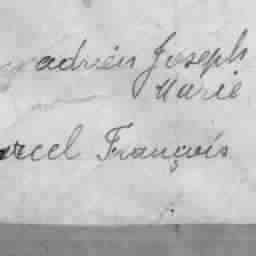 adrien Joseph
Marie
arcel François